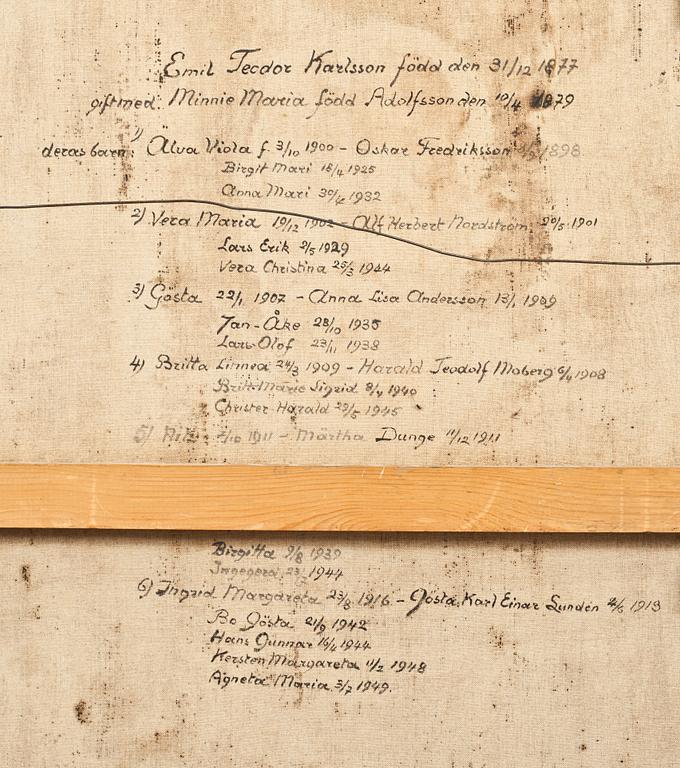 Emil Teodor Karlsson född den 31/12 1877
gift med: Minnie Maria född Adolfsson den 10/4 1879
deras barn: 1) Älva Viola f. 3/10 1900 - Oskar Fredriksson 1898
Birgit Mari 15/4 1925
Anna Mari 30/4 1932
2) Vera Maria 19/12 1902 - Alf Herbert Nordström 20/5 1901
Lars Erik 2/5 1929
Vera Christina 25/3 1944
3) Gösta 22/1 1907 - Anna Lisa Andersson 13/1 1909
Jan-Åke 28/10 1935
Lars-Olof 23/11 1938
4) Britta Linnea 24/3 1909 - Harald Teodolf Moberg 6/4 1908
Britt-Marie Sigrid 8/4 1940
Christer Harald 29/5 1945
5) 1911 - Märtha Dunge 11/12 1911
Birgitta 9/8 1939
Ingegerd 1944
6) Ingrid Margareta 23/8 1916 - Gösta Karl Einar Lundén 1913
Bo Gösta 21/9 1942
Hans Gunnar 16/4 1944
Kersten Margareta 11/2 1948
Agneta Maria 3/2 1949.